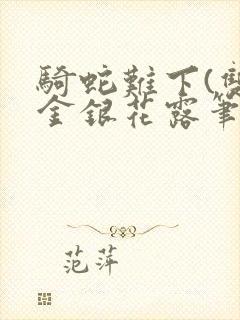 騎蛇難下(雙
金銀花露筆
范萍